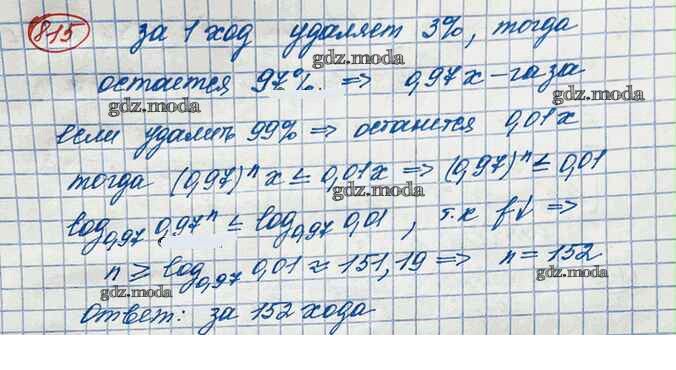 815 за 1 ход удаляет 3%, тогда
gdz.moda
остается 97%. => 0,97x - газа
gdz.moda gdz.moda
если удалить 99% => останется 0,01x
тогда (0,97)ⁿ x ≤ 0,01x => (0,97)ⁿ ≤ 0,01
gdz.moda
log₀,₉₇ 0,97ⁿ ≤ log₀,₉₇ 0,01, т.к f↓ =>
n ≥ log₀,₉₇ 0,01 ≈ 151,19 => n = 152
gdz.moda gdz.moda gdz.moda
Ответ: за 152 хода